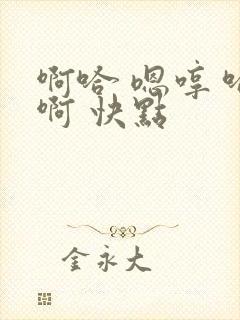 啊哈 嗯哼 哈
啊 快點
金永大